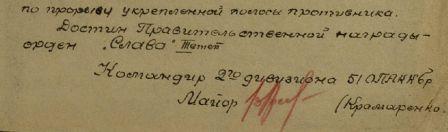 по прорыву укрепленной полосы противника.
Достин Правительственной награды-
орден „Слава" Штеп
Командир 2го дивизиона 51 ОПАНБр
Майор (Крамаренко.